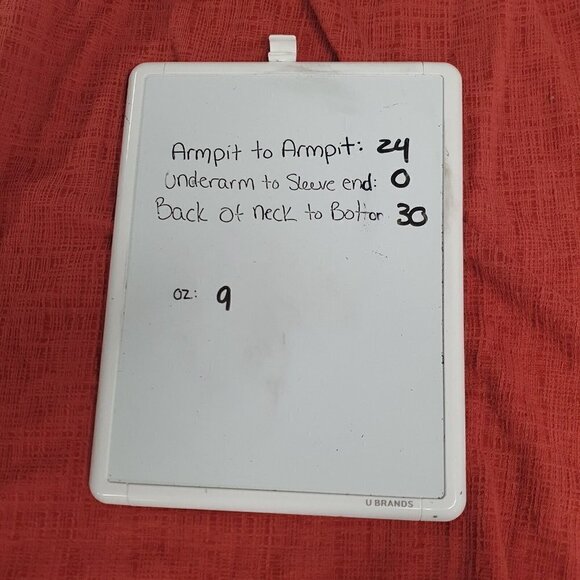 Armpit to Armpit: 24
Underarm to Sleeve end: 0
Back of neck to Bottom 30
oz: 9
U BRANDS